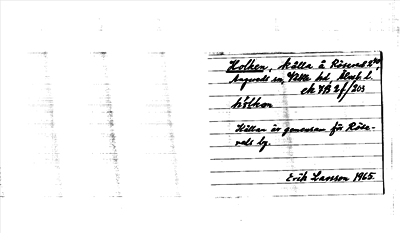 Holken, källa å Rösered
Angered sn, Vättle hd, Älvsb. l.
ek 7B 2f/203
hòlkən
Källan är gemensam för Röse-
reds by.
Erik Larsson 1965.